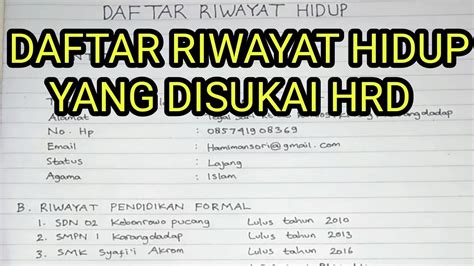 DAFTAR RIWAYAT HIDUP
DAFTAR RIWAYAT HIDUP
YANG DISUKAI HRD
Alamat :
No. Hp : 085741908369
Email : Hamimansori@gmail.com
Status : Lajang
Agama : Islam
B. RIWAYAT PENDIDIKAN FORMAL
1. SDN 02 Kebonrowo pucang Lulus tahun 2010
2. SMPN 1 Karangdadap Lulus tahun 2013
3. SMK Syafi'i Akrom Lulus tahun 2016